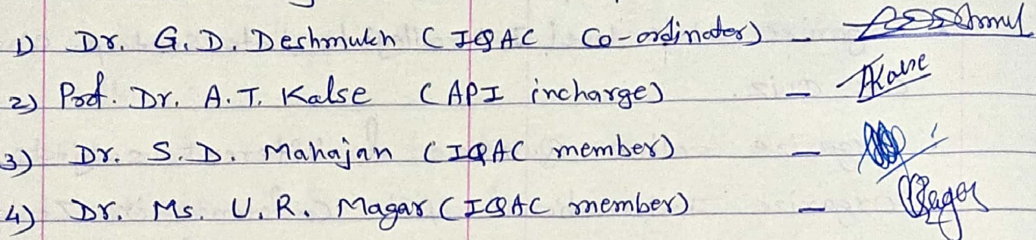 1) Dr. G. D. Deshmukh (IQAC Co-ordinator) -
2) Prof. Dr. A. T. Kalse (API incharge) - AKalse
3) Dr. S. D. Mahajan (IQAC member) -
4) Dr. Ms. U. R. Magar (IQAC member) -